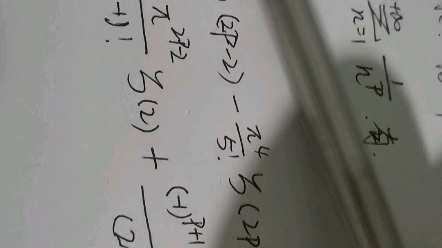 \sum_{n=1}^{+\infty} \frac{1}{n^p} .
(2p-2) - \frac{\pi^4}{5!} ζ(2p
\frac{\pi^{2p-2}}{+1)!} ζ(2) + \frac{(-1)^{p+1}}{(2}